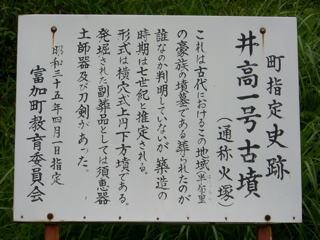 町指定史跡
井高一号古墳
（通称火塚）
これは古代におけるこの地域（半布里）
の豪族の墳墓である葬られたのが
誰なのか判明していないが築造の
時期は七世紀と推定される。
形式は横穴式上円下方墳である。
発掘された副葬品としては須恵器
土師器及び刀剣があった。
昭和三十五年四月一日指定
富加町教育委員会